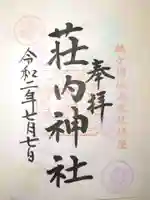 奉拝
荘内神社
令和二年七月七日